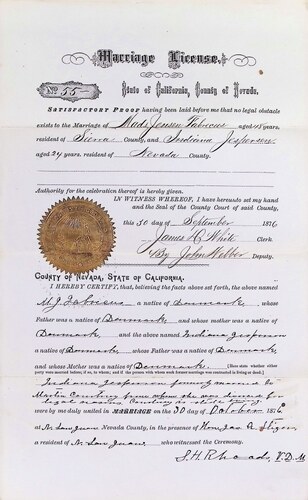 Marriage License.
No. 55
State of California, County of Nevada.
SATISFACTORY PROOF having been laid before me that no legal obstacle
exists to the Marriage of Mads Jensen Fabricus aged 48 years,
resident of Sierra County, and Indiana Jespersen
aged 24 years, resident of Nevada County.
Authority for the celebration thereof is hereby given.
IN WITNESS WHEREOF, I have hereunto set my hand
and the Seal of the County Court of said County,
this 30 day of September 1876
James D White Clerk.
By John Webber Deputy.
COUNTY OF NEVADA, STATE OF CALIFORNIA.
I HEREBY CERTIFY, that, believing the facts above set forth, the above named
M J Fabricus a native of Denmark, whose
Father was a native of Denmark and whose mother was a native of
Denmark and the above named Indiana Jesperson
a native of Denmark whose Father was a native of Denmark
and whose Mother was a native of Denmark
Indiana Jesperson formerly married to
Martin from whom she was divorced for
legal still living
were by me duly united in MARRIAGE on the 30 day of October 1876
at N. San Juan Nevada County, in the presence of Hon. Jas. A.
a resident of N. San Juan who witnessed the Ceremony.
S. H. Rhoads, V.D.M